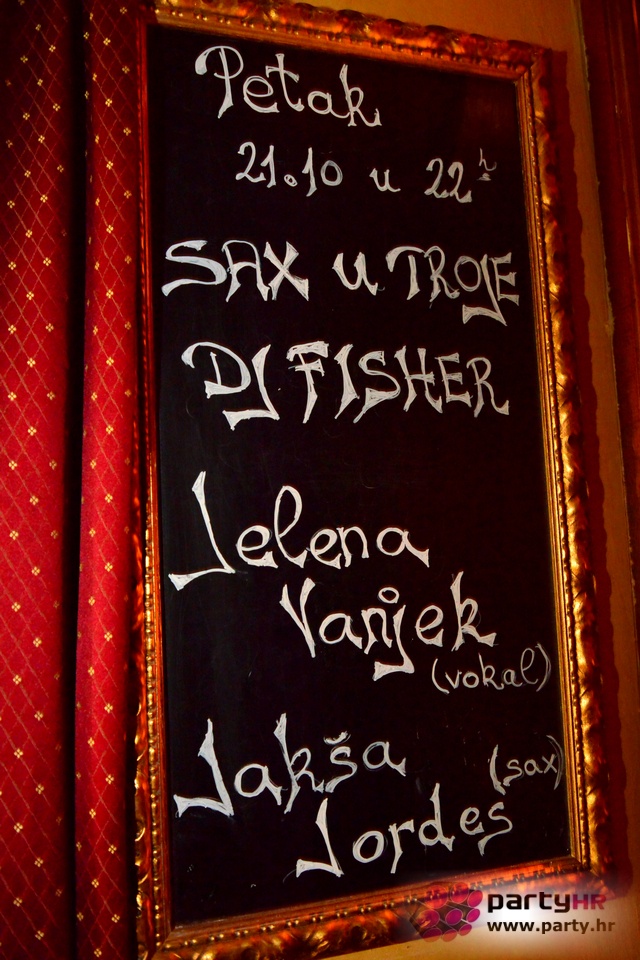 Petak
21.10 u 22h
SAX U TROJE
DJ FISHER
Jelena
Vanjek
(vokal)
Jakša (sax)
Jordes
partyHR
www.party.hr